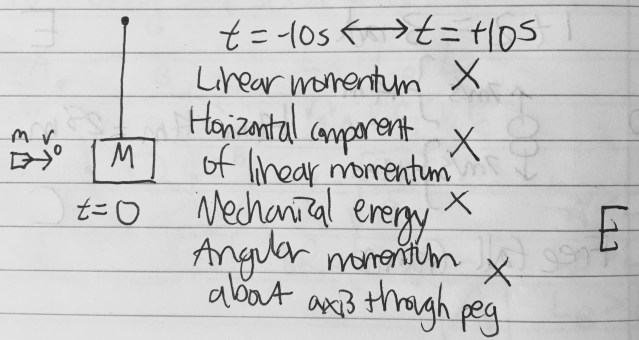 t = -10s ↔ t = +10s
Linear momentum X
Horizontal component
of linear momentum X
m v₀
M
t = 0
Mechanical energy X
Angular momentum
about axis through peg X
E